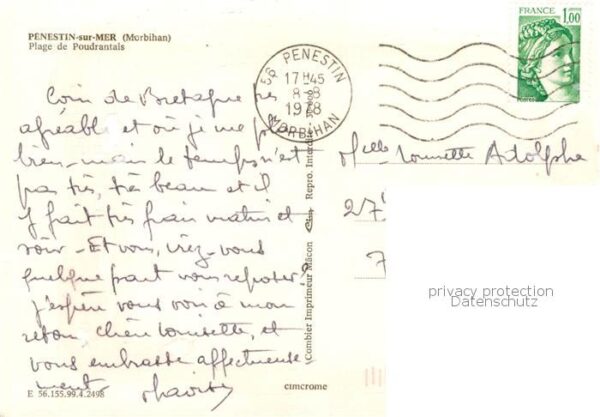 PÉNESTIN-sur-MER (Morbihan)
Plage de Poudrantais
FRANCE
1,00
POSTES
56 PENESTIN
17H45
8-8
1978
MORBIHAN
Coin de Bretagne très
agréable et où je me p
bien - mais le temps n'est
pas très, très beau et il
y fait très frais matin et
soir - Et vous, irez-vous
quelque part vous reposer ?
j'espère vous voir à mon
retour chère Louisette, et
vous embrasse affectueuse-
ment
Melle Louisette Adolphe
27
7
Combier Imprimeur Mâcon
Repro. Interdite
cimcrome
E 56.155.99.4.2498
privacy protection
Datenschutz